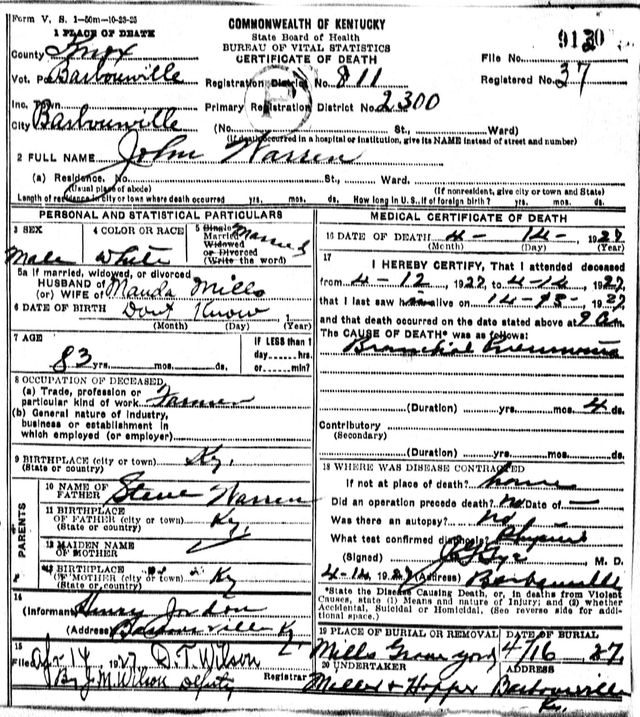 Form V. S. 1-50m-10-23-25
COMMONWEALTH OF KENTUCKY
State Board of Health
BUREAU OF VITAL STATISTICS
CERTIFICATE OF DEATH
1 PLACE OF DEATH
County Knox
Vot. Pct Barbourville
Inc. Town
City Barbourville
Registration District No. 811
Primary Registration District No. 2300
File No. 9130
Registered No. 37
(No. St., Ward)
(If death occurred in a hospital or institution, give its NAME instead of street and number)
2 FULL NAME John Warren
(a) Residence. No. St., Ward.
(Usual place of abode) (If nonresident, give city or town and State)
Length of residence in city or town where death occurred yrs. mos. ds. How long in U. S., if of foreign birth? yrs. mos. ds.
PERSONAL AND STATISTICAL PARTICULARS
3 SEX 4 COLOR OR RACE 5 Single Married Widowed or Divorced (Write the word)
Male White Married
5a If married, widowed, or divorced
HUSBAND of
(or) WIFE of Manda Mills
6 DATE OF BIRTH Dont Know 1
(Month) (Day) (Year)
7 AGE If LESS than
1 day hrs.
83 yrs. mos. ds. or min?
8 OCCUPATION OF DECEASED
(a) Trade, profession or
particular kind of work Farmer
(b) General nature of industry,
business or establishment in
which employed (or employer)
9 BIRTHPLACE (city or town) Ky.
(State or country)
PARENTS
10 NAME OF
FATHER Steve Warren
11 BIRTHPLACE
OF FATHER (city or town) Ky.
(State or country)
12 MAIDEN NAME
OF MOTHER
13 BIRTHPLACE
OF MOTHER (city or town) Ky
(State or country)
14
(Informant Henry Jordon
(Address Barbourville Ky.
15
Filed Apr 14 1927 D. T. Wilson
Registrar
By J. M. Wilson Deputy
MEDICAL CERTIFICATE OF DEATH
16 DATE OF DEATH 4- 14- 1927
(Month) (Day) (Year)
17
I HEREBY CERTIFY, That I attended deceased
from 4-12 1927 to 4-14 1927
that I last saw him alive on 1927
and that death occurred on the date stated above at 9 a m.
The CAUSE OF DEATH* was as follows:
Bronchial Pneumonia
(Duration) yrs. mos. 4 ds.
Contributory
(Secondary)
(Duration) yrs. mos. ds.
18 WHERE WAS DISEASE CONTRACTED
If not at place of death? home
Did an operation precede death? no Date of —
Was there an autopsy? no
What test confirmed diagnosis?
(Signed) M. D.
4-14, 1927 (Address) Barbourville
*State the Disease Causing Death, or, in deaths from Violent
Causes, state (1) Means and nature of Injury; and (2) whether
Accidental, Suicidal or Homicidal. (See reverse side for addi-
tional space.)
19 PLACE OF BURIAL OR REMOVAL DATE OF BURIAL
Mills Grave yard 4/16 27.
20 UNDERTAKER ADDRESS
Miller & Hopper Barbourville
Ky.